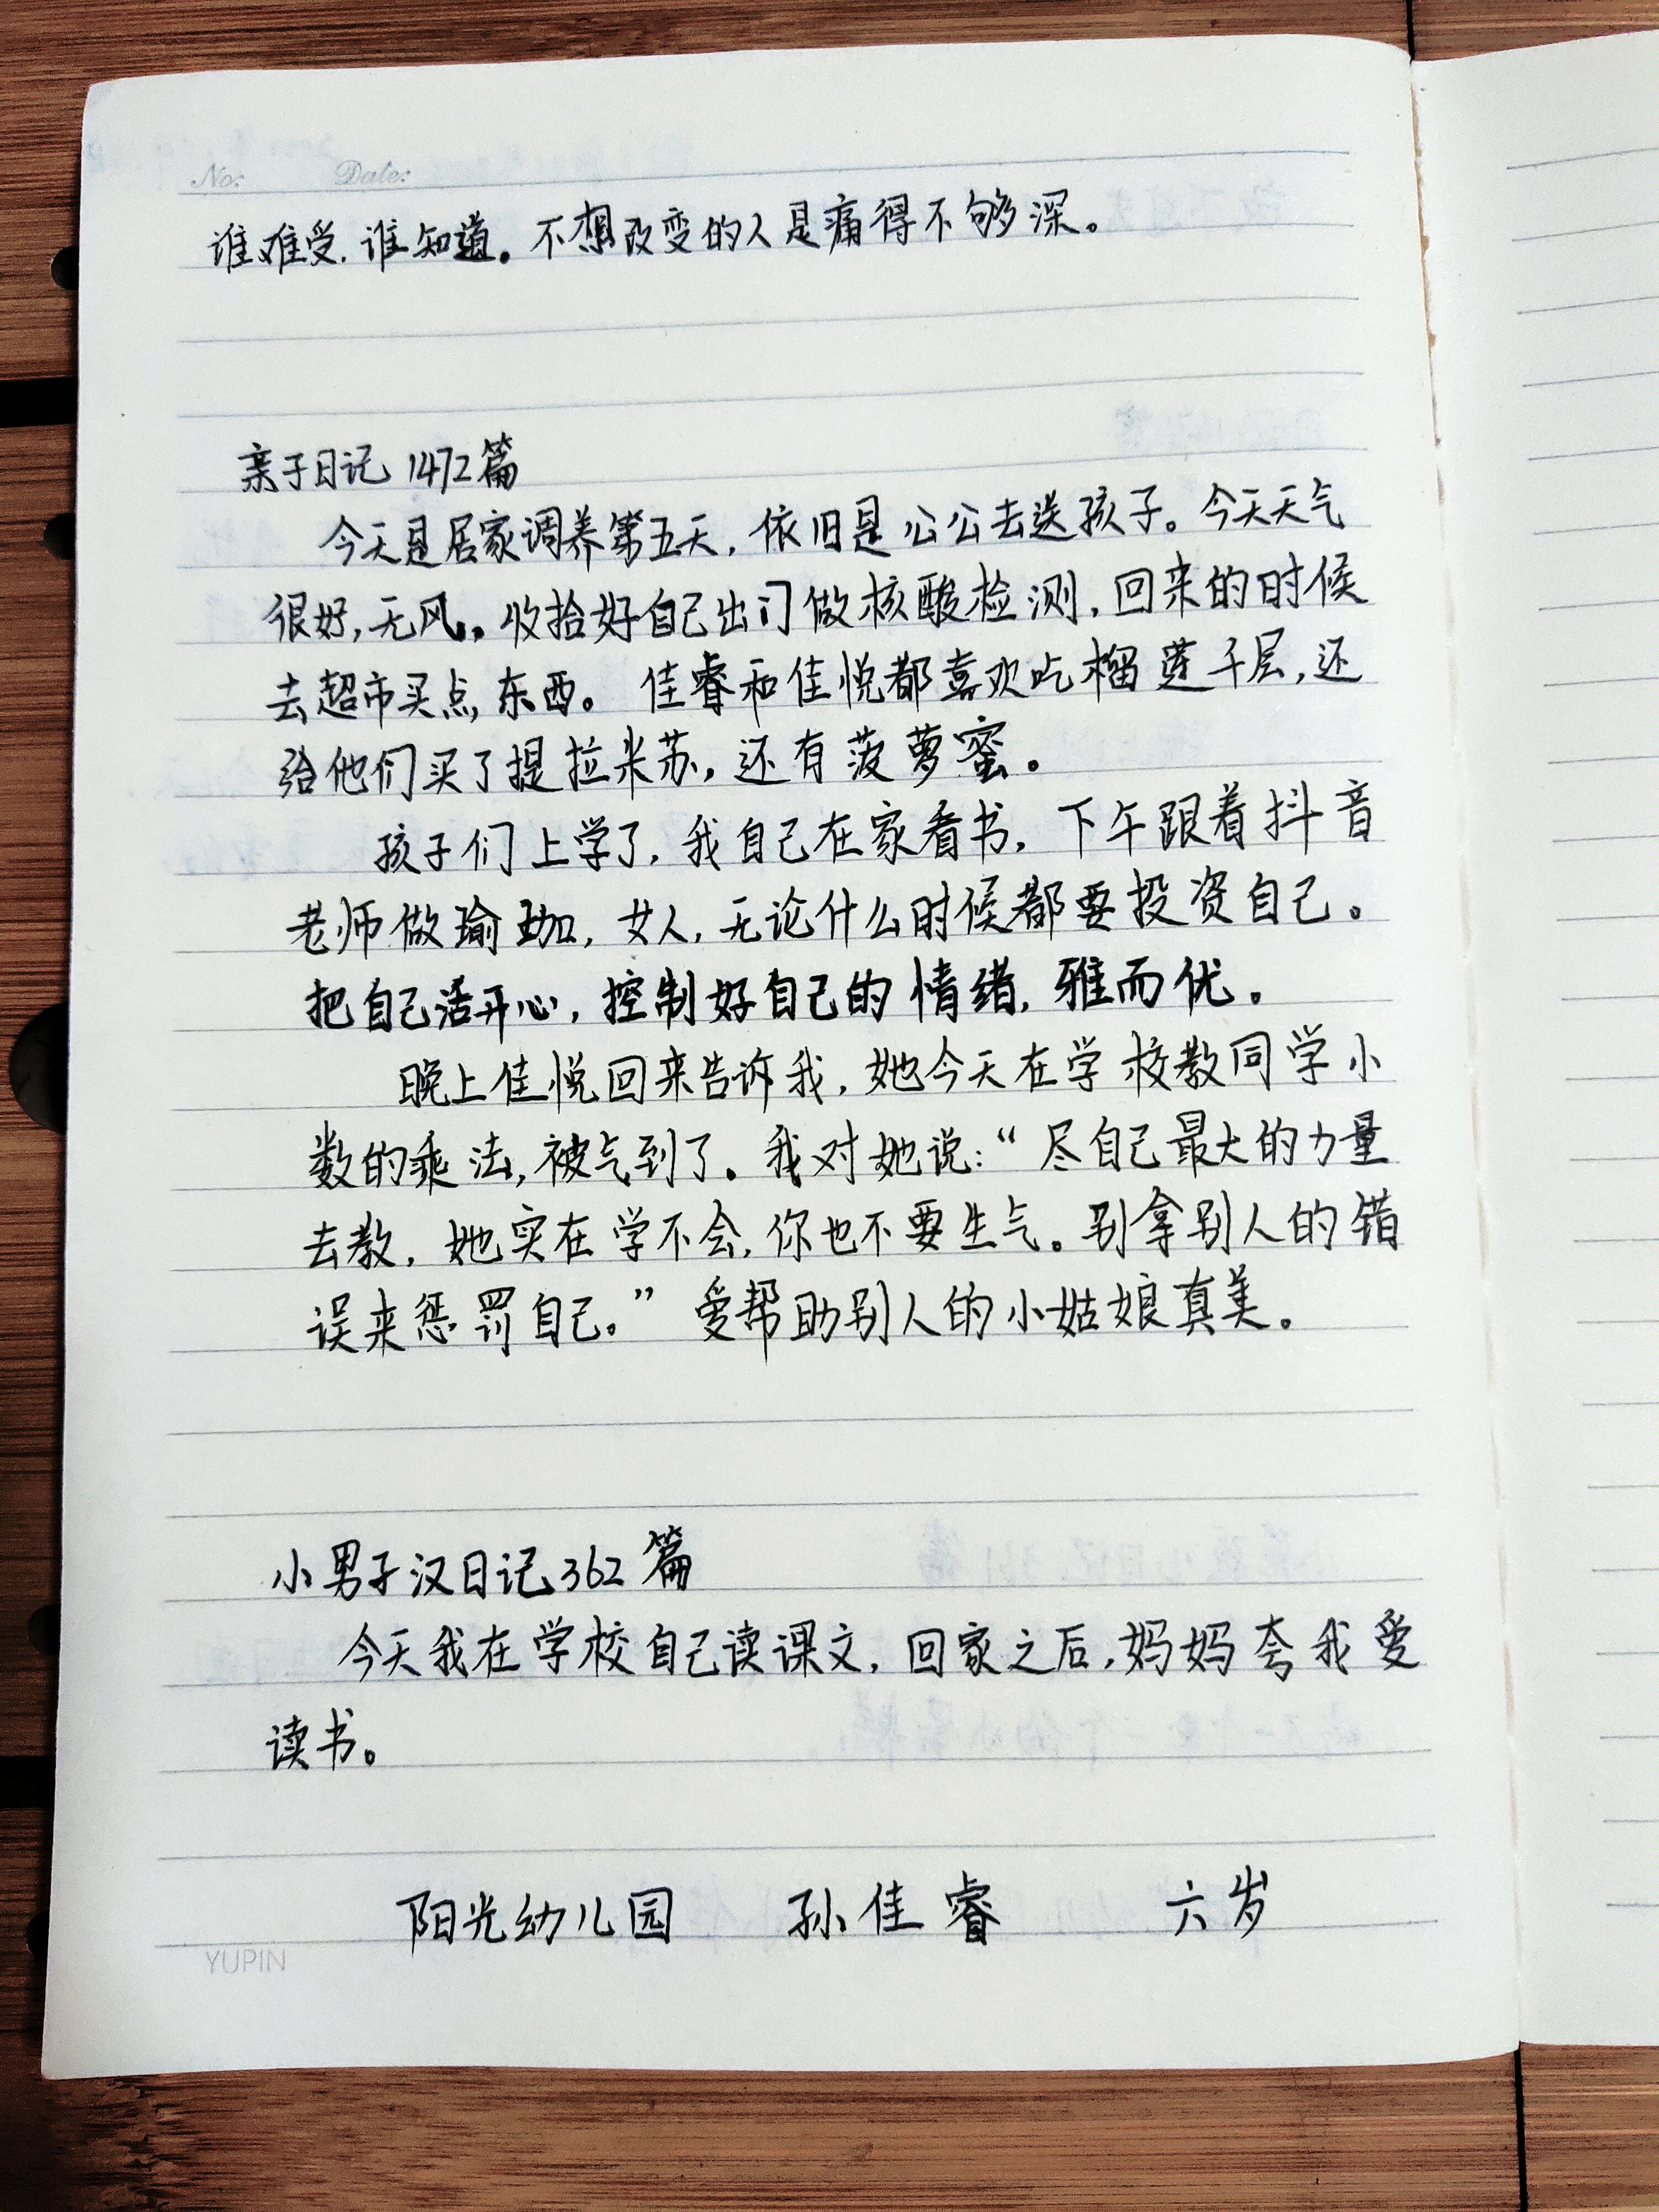 No:  Date:
谁难受，谁知道。不想改变的人是痛得不够深。
亲子日记 1472篇
今天是居家调养第五天，依旧是公公去送孩子。今天天气
很好，无风。收拾好自己出门做核酸检测，回来的时候
去超市买点东西。佳睿和佳悦都喜欢吃榴莲千层，还
给他们买了提拉米苏，还有菠萝蜜。
孩子们上学了，我自己在家看书，下午跟着抖音
老师做瑜珈，女人，无论什么时候都要投资自己。
把自己活开心，控制好自己的情绪，雅而优。
晚上佳悦回来告诉我，她今天在学校教同学小
数的乘法，被气到了。我对她说：“尽自己最大的力量
去教，她实在学不会，你也不要生气。别拿别人的错
误来惩罚自己。”爱帮助别人的小姑娘真美。
小男子汉日记362篇
今天我在学校自己读课文，回家之后，妈妈夸我爱
读书。
阳光幼儿园  孙佳睿  六岁
YUPIN